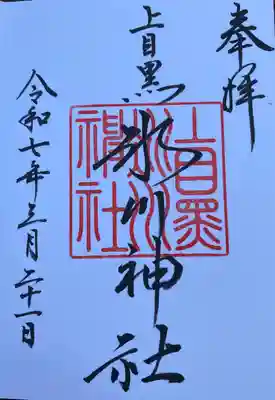 奉拝
上目黒
氷川神社
上目黒氷川神社
令和七年三月二十一日